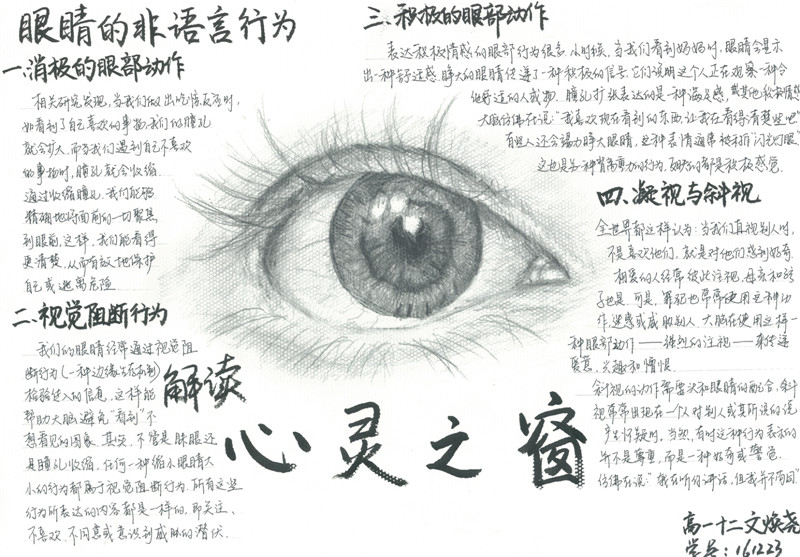 眼睛的非语言行为
一.消极的眼部动作
相关研究发现,当我们做出吃惊反应时,
如看到了自己喜欢的事物,我们的瞳孔
就会扩大,而当我们遇到自己不喜欢
的事物时,瞳孔就会收缩.
通过收缩瞳孔,我们能够
精确地将面前的一切聚焦
到眼前,这样,我们能看得
更清楚,从而有效地保护
自己或逃离危险
二.视觉阻断行为
我们的眼睛经常通过视觉阻
断行为(一种边缘生存机制)
检验进入的信息.这样能
帮助大脑避免“看到”不
想看见的图象.其实,不管是眯眼还
是瞳孔收缩,任何一种缩小眼睛大
小的行为都属于视觉阻断行为.所有这些
行为所表达的内容都是一样的,即关注、
不喜欢、不同意或意识到威胁的潜伏.
三.积极的眼部动作
表达积极情感的眼部行为很多.小时候,当我们看到妈妈时,眼睛会显示
出一种舒适感.睁大的眼睛传递了一种积极的信号.它们说明这个人正在观察一种令
他舒适的人或物.瞳孔扩张表达的是一种满足感,或其他积极情感
大脑仿佛在说“我喜欢现在看到的东西,让我在看得清楚些吧”
有些人还会竭力睁大眼睛,这种表情通常被称作“闪光灯眼”
这也是另一种背带重力的行为,那的都是积极感觉.
四.凝视与斜视
全世界都这样认为:当我们直视别人时,
不是喜欢他们,就是对他们感到好奇
相爱的人经常彼此注视,母亲和孩
子也是.可是,罪犯也常常使用这种动
作,迷惑或威胁别人.大脑在使用这样一
种眼部动作——强烈的注视——来传递
爱意、兴趣和憎恨.
斜视的动作需要头和眼睛的配合,斜
视常常出现在一个人对别人或其所说的话
产生怀疑时.当然,有时这种行为表示的
并不是尊重,而是一种好奇或警觉.
仿佛在说“我在听你讲话,但我并不同意”
解读
心灵之窗
高一十二文焕尧
学号:161223